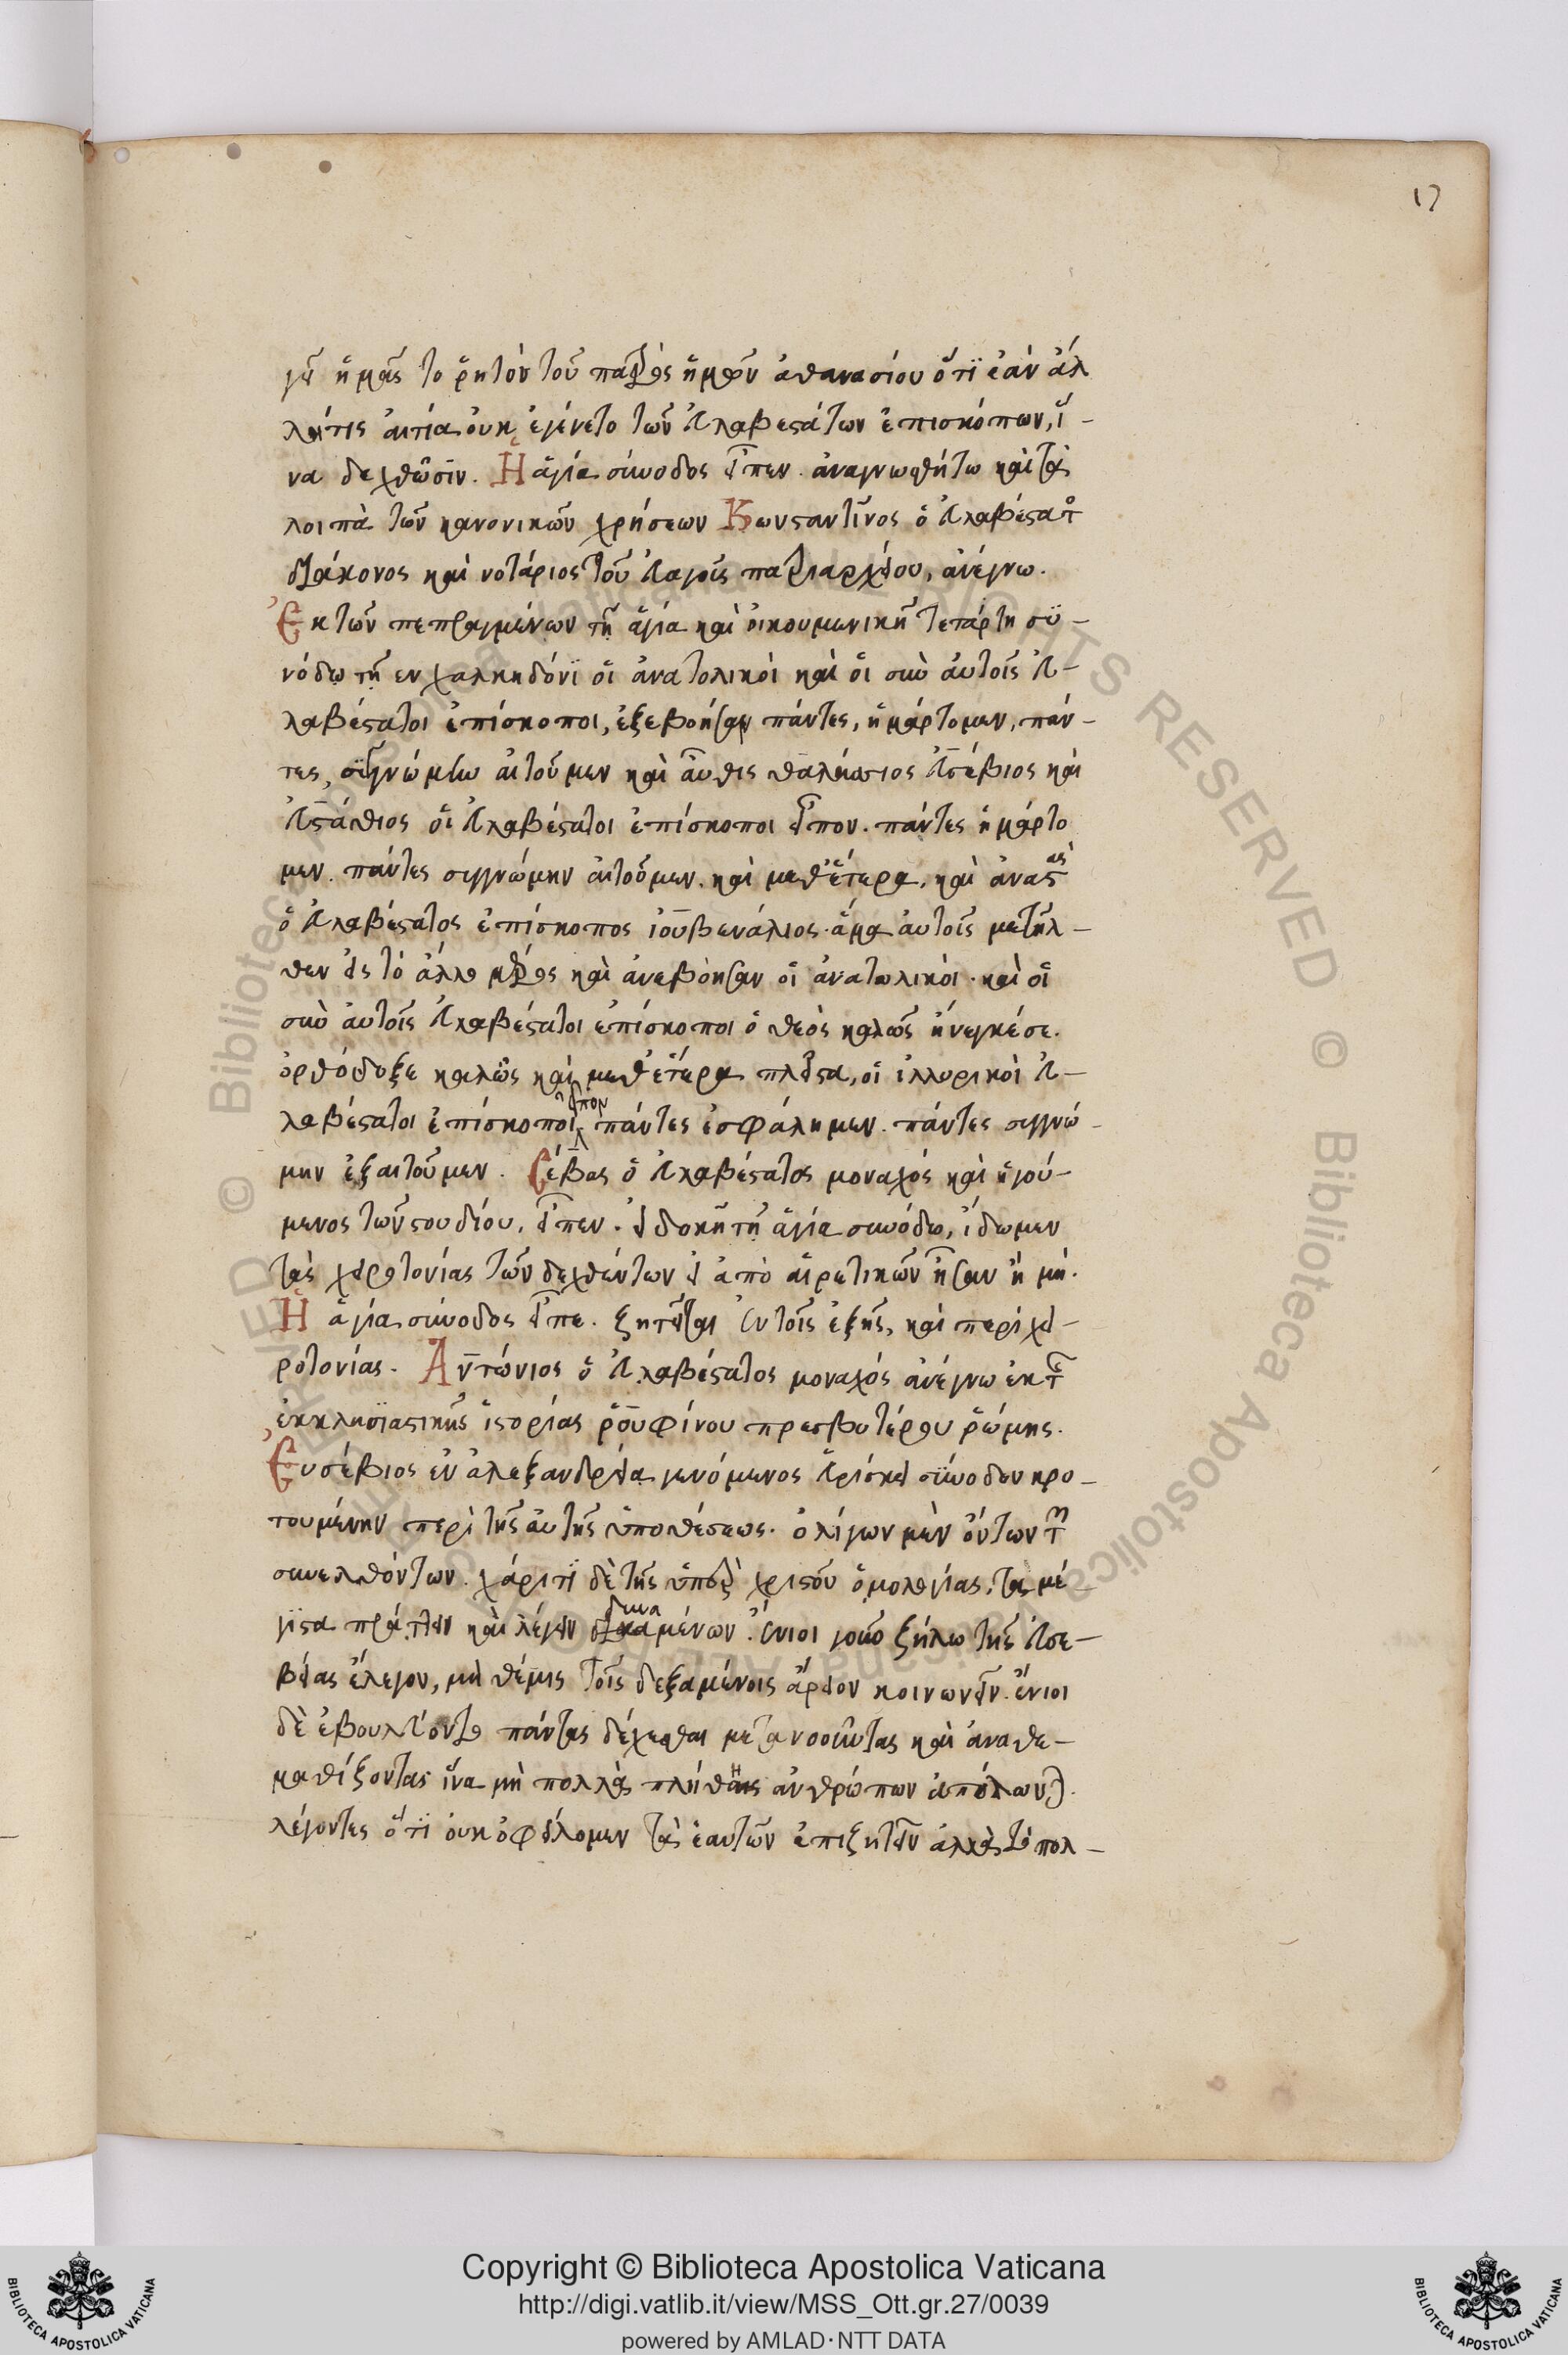 17
γεῖ ἡμᾶς το ῥητὸν τοῦ πατρὸς ἡμῶν ἀθανασίου ὅτϊ ἐὰν ἀλ
λη τὶς αιτία ουκ ἐγένετο τῶν εὐλαβεστάτων ἐπισκόπων, ἵ-
να δεχθῶσϊν. Ἡ ἁγία σύνοδος εἶπεν. ἀναγνωσθήτω καὶ τὰ
λοιπὰ τῶν κανονικῶν χρήσεων Κωνσταντῖνος ὁ εὐλαβέστατος
διάκονος καὶ νοτάριος τοῦ εὐαγοῦς πατριαρχείου, ἀνέγνω.
Ἐκ τῶν πεπραγμένων τῆ ἁγία καὶ οἰκουμενικῆ τετάρτη συ-
νόδω τῆ εν χαλκηδόνϊ οἱ ἀνατολικοὶ καὶ οἱ σὺν ἀυτοῖς εὐ-
λαβέστατοι ἐπίσκοποι, ἐξεβοήσαν πάντες, ἡμάρτομεν, πάν-
τες, συγγνώμην αἰτοῦμεν καὶ αὖθις θαλάσσιος εὐσέβιος καὶ
εὐστάθιος οἱ εὐλαβέστατοι ἐπίσκοποι εἶπον. πάντες ἡμάρτο
μεν. πάντες συγγνώμην ἀιτοῦμεν. καὶ μεθ' ἕτερα, καὶ ἀναστὰς
ὁ εὐλαβέστατος ἐπίσκοπος ἰουβενάλιος. ἅμα ἀυτοῖς μετῆλ-
θεν εἰς τὸ ἄλλο μέρος καὶ ἀνεβόησαν οἱ ἀνατωλικοὶ. καὶ οἱ
σὺν ἀυτοῖς εὐλαβέστατοι ἐπίσκοποι ὁ θεὸς καλῶς ἤνεγκέ σε.
ὀρθόδοξε καλῶς καὶ μεθ' ἕτερα πλεῖστα, οἱ ἰλλυρικοὶ εὐ-
λαβέστατοι ἐπίσκοποι εἶπον πάντες ἐσφάλημεν. πάντες συγγνώ-
μην ἐξαιτοῦμεν. Σάβας ὁ εὐλαβέστατος μοναχός καὶ ἡγού-
μενος τῶν στουδίου, εἶπεν. εἰ δοκῆ τῆ ἁγία συνόδω, ἴδωμεν
τὰς χειροτονίας τῶν δεχθέντων εἰ ἀπὸ αἱρετικῶν ἦσαν ἢ μὴ.
Ἡ ἁγία σύνοδος εἶπε. ζητεῖται ἐν τοῖς ἑξῆς, καὶ περὶ χει-
ροτονίας. Αντώνιος ὁ εὐλαβέστατος μοναχός ἀνέγνω ἐκ τῆς
ἐκκλησϊαστικῆς ἱστορίας ῥουφίνου πρεσβυτέρου ῥώμης.
Ἐυσέβιος ἐν ἀλεξανδρεία γενόμενος εὑρίσκει σύνοδον κρο-
τουμένην περὶ τῆς ἀυτῆς ὑποθέσεως. ὀλίγων μὲν ὄντων τῶν
συνελθόντων. χάριτϊ δὲ τῆς ὑπὲρ χριστοῦ ὁμολογίας, τὰ μέ
γϊστα πράττειν καὶ λέγειν δυναμένων. ἔνιοι γοῦν ζήλω τῆς εὐσε-
βείας ἔλεγον, μὴ θέμις τοῖς δεξαμένοις ἄρειον κοινωνεῖν. ἔνιοι
δὲ ἐβουλεύοντο πάντας δέχεσθαι μετανοοῦντας καὶ ἀναθε-
ματίζοντας ἵνα μὴ πολλὰ πλήθη ἀνθρώπων ἀπόλωνται.
λέγοντες ὅτϊ ὀυκ ὀφείλομεν τὰ ἑαυτῶν ἐπιζητεῖν ἀλλὰ τὰ πολ-
Copyright © Biblioteca Apostolica Vaticana
http://digi.vatlib.it/view/MSS_Ott.gr.27/0039
powered by AMLAD·NTT DATA
BIBLIOTECA APOSTOLICA VATICANA
BIBLIOTECA APOSTOLICA VATICANA